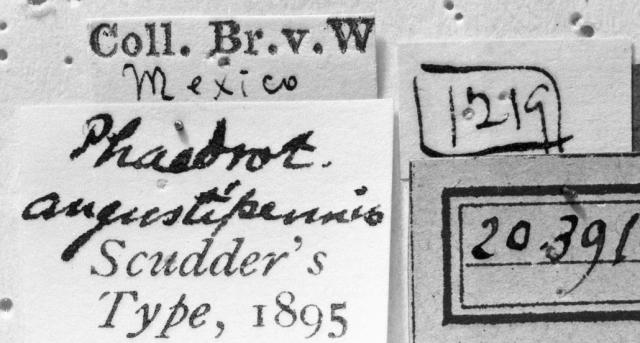 Coll. Br. v. W
Mexico
Phaedrot.
angustipennis
Scudder's
Type, 1895
1219
20.391